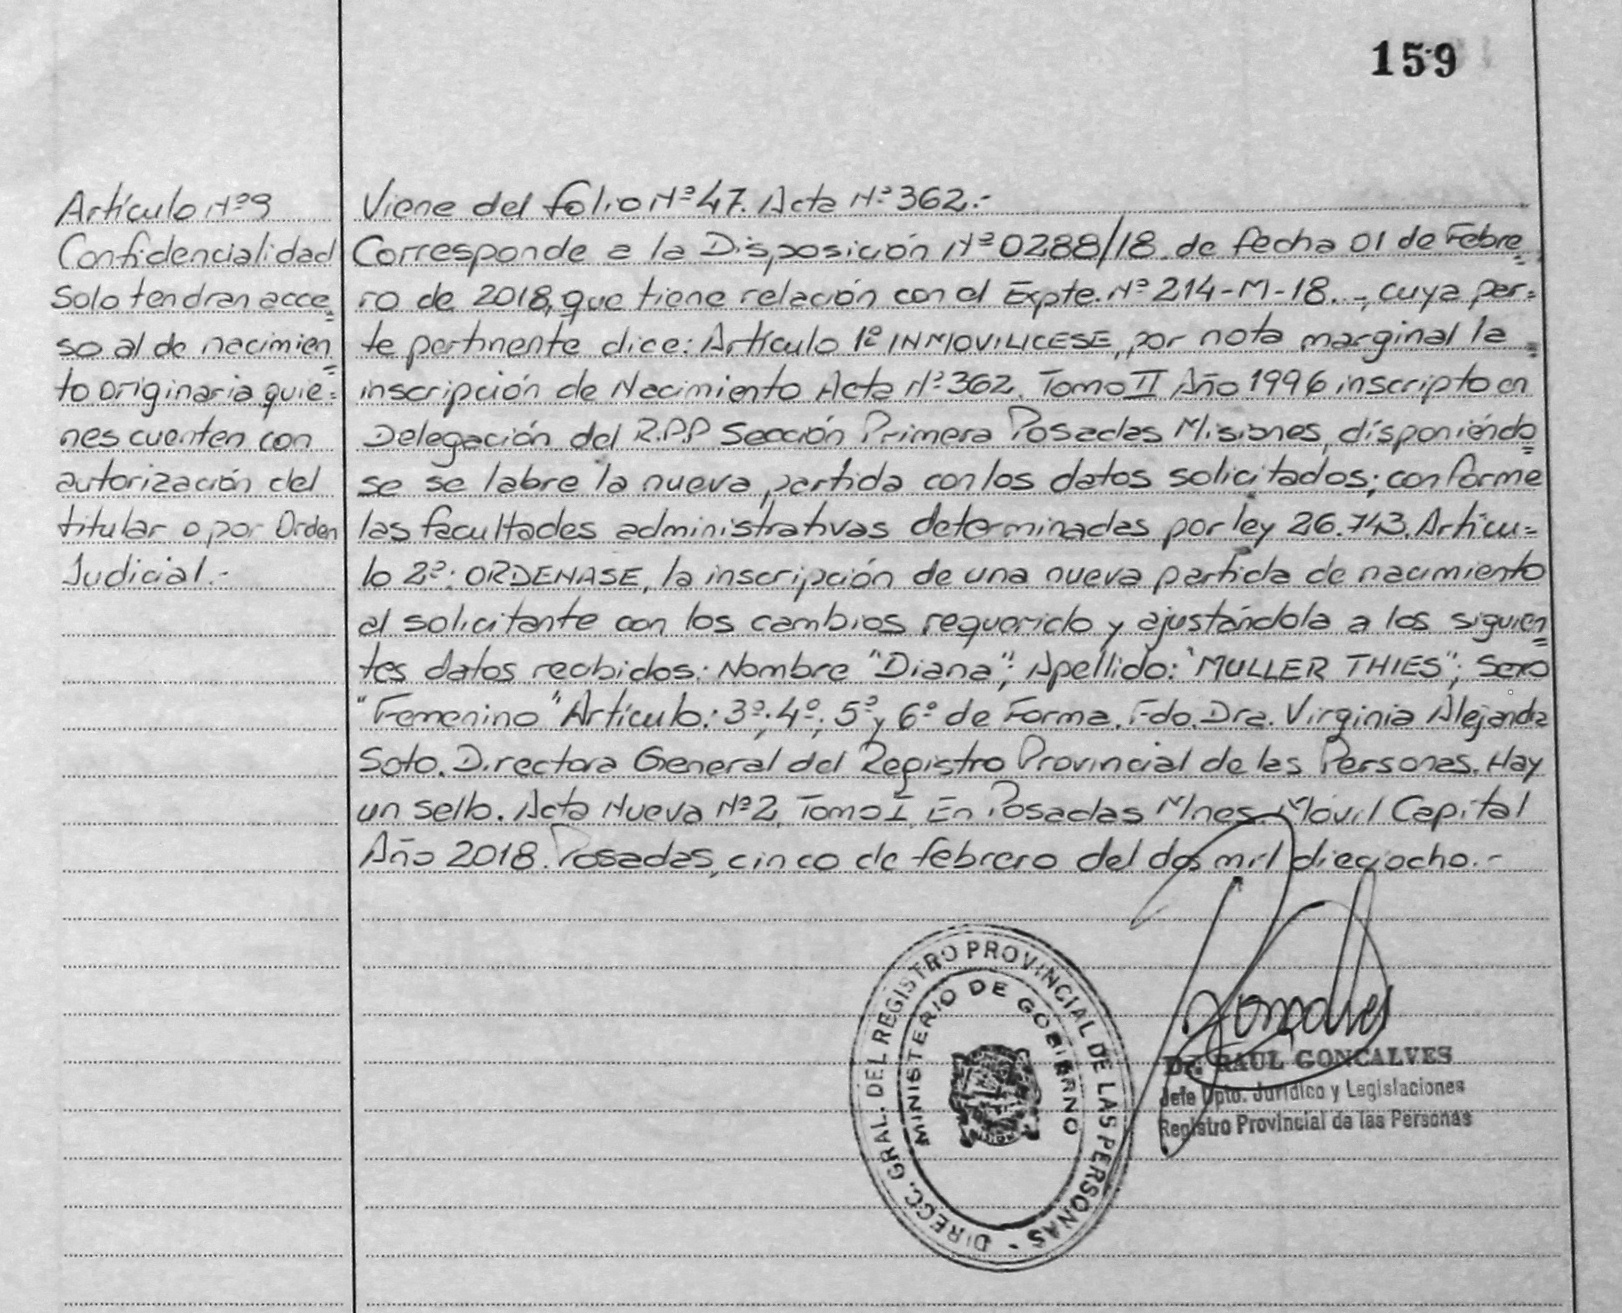 159
Artículo Nº9
Confidencialidad
Solo tendran acce=
so al de nacimien=
to originaria quie=
nes cuenten con
autorización del
titular o por Orden
Judicial.-
Viene del folio Nº 47. Acta Nº 362.-
Corresponde a la Disposición Nº 0288/18 de fecha 01 de Febre=
ro de 2018, que tiene relación con el Expte. Nº 214-M-18.-, cuya par=
te pertinente dice: Artículo 1º INMOVILICESE, por nota marginal la =
inscripción de Nacimiento Acta Nº 362, Tomo II Año 1996 inscripto en
Delegación del R.P.P Sección Primera Posadas Misiones, disponiéndo=
se se labre la nueva partida con los datos solicitados; conforme
las facultades administrativas determinadas por ley 26.743. Artícu=
lo 2º: ORDENASE, la inscripción de una nueva partida de nacimiento
al solicitante con los cambios requerido y ajustándola a los siguien=
tes datos recibidos: Nombre "Diana"; Apellido: "MULLER THIES"; Sexo
"Femenino" Artículo: 3º; 4º; 5º y 6º de Forma. Fdo. Dra. Virginia Alejandra
Soto. Directora General del Registro Provincial de las Personas. Hay
un sello. Acta Nueva Nº2, Tomo I, En Posadas Mnes. Móvil Capital
Año 2018. Posadas, cinco de febrero del dos mil dieciocho.-
DIRECC. GRAL. DEL REGISTRO PROVINCIAL DE LAS PERSONAS -
MINISTERIO DE GOBIERNO
Dr. RAUL GONCALVES
Jefe Dpto. Jurídico y Legislaciones
Registro Provincial de las Personas